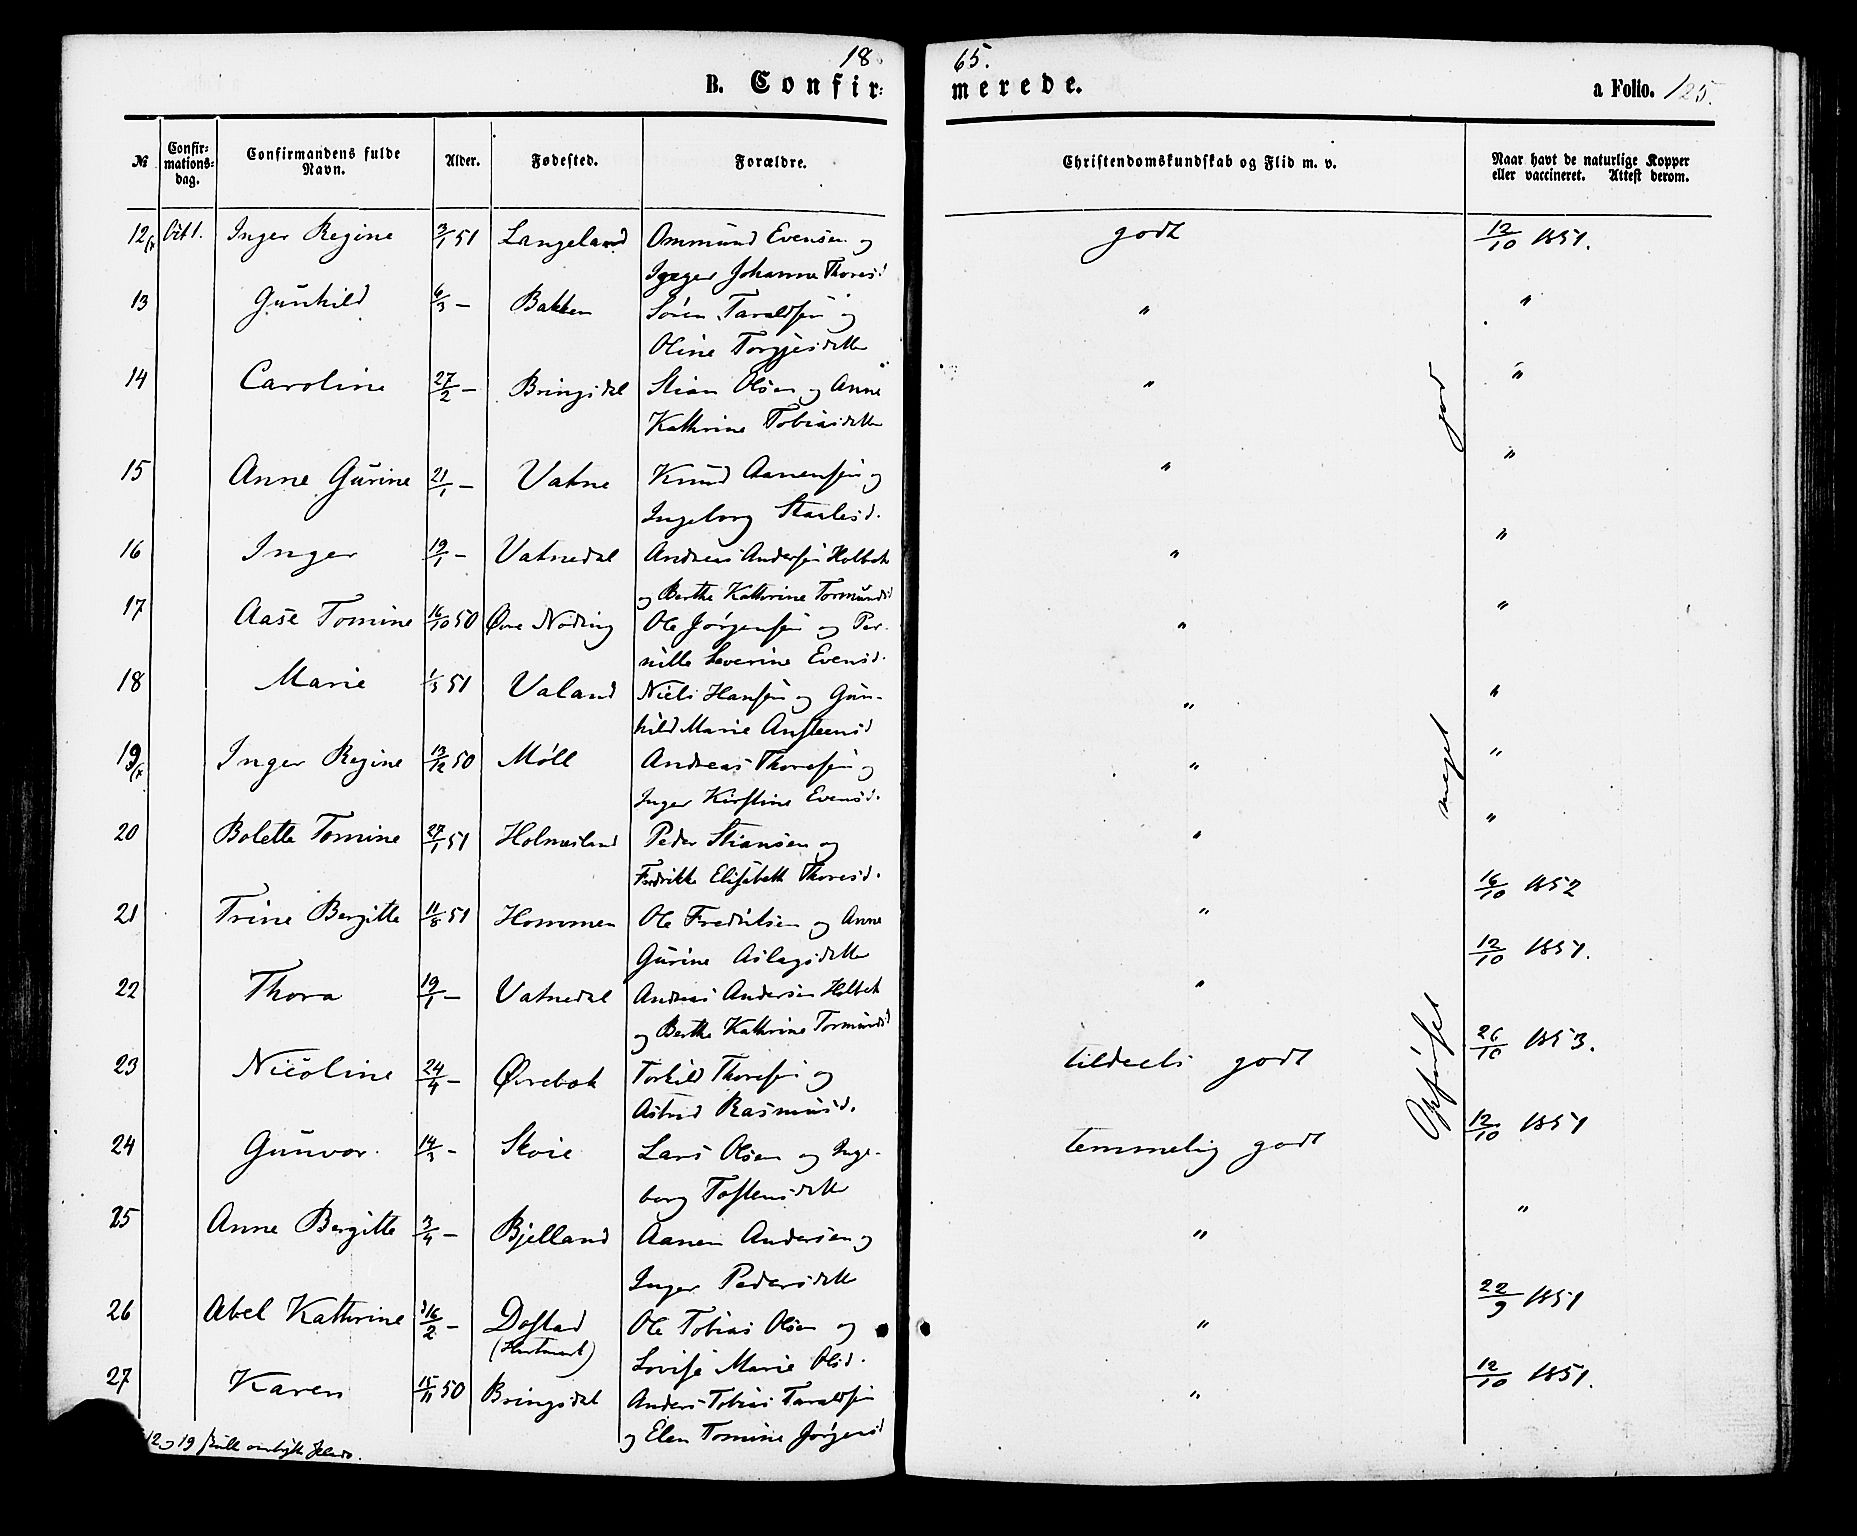 18 65.
B. Confir= merede. a Folio. 125.
№ Confir=mations=dag. Confirmandens fulde Navn. Alder. Fødested. Forældre. Christendomskundskab og Flid m. v. Naar havt de naturlige Kopper eller vaccineret. Attest derom.
12 Oct 1. Inger Regine 3/1 51 Langeland Ommund Evensen og godt 12/10 1851.
Inger Johanne Thoresd
13 Gunhild 6/3 — Bakken Søren Taraldsen og " "
Oline Torgjesdatter
14 Caroline 27/2 — Bringsdal Stian Olsen og Anne " "
Kathrine Tobiasdatter
15 Anne Gurine 21/1 — Vatne Knud Aanensen og " "
Ingeborg Starlesd.
16 Inger 19/1 — Vatnedal Andreas Andersen Holbek " "
og Berthe Kathrine Tormundsd
17 Aase Tomine 16/10 50 Øvre Nøding Ole Jørgensen og Per- " "
nille Severine Evensd.
18 Marie 1/3 51 Valand Niels Hansen og Gun- " "
hild Marie Austeensd
19 Inger Regine 13/12 50 Møll Andreas Thoresen og " "
Inger Kirstine Evensd.
20 Bolette Tomine 27/1 51 Holmesland Peder Stiansen og " "
Fredrikke Elisabeth Thoresd.
21 Trine Bergitte 11/8 51 Hommen Ole Fredriksen og Anne " 16/10 1852
Gurine Aslagsdatter
22 Thora 19/1 — Vatnedal Andreas Andersen Holbek " 12/10 1851.
og Berthe Kathrine Tormundsd
23 Nicoline 24/4 — Øvrebøk Torkild Thoresen og tildeels godt 26/10 1853.
Astrid Rasmusd.
24 Gunvor 14/3 — Skoie Lars Olsen og Inge- temmelig godt 12/10 1851
borg Tostensdatter
25 Anne Bergitte 3/4 — Bjelland Aanen Andersen og " "
Inger Pedersdatter
26 Abel Kathrine 16/2 — Dostad Ole Tobias Olsen og " 22/9 1851
Lovise Marie Olsd.
27 Karen 15/11 50 Bringsdal Anders Tobias Taraldsen " 12/10 1851.
og Elen Tomine Jørgensd
Opførsel meget god
12 og 19 skulle ombytte